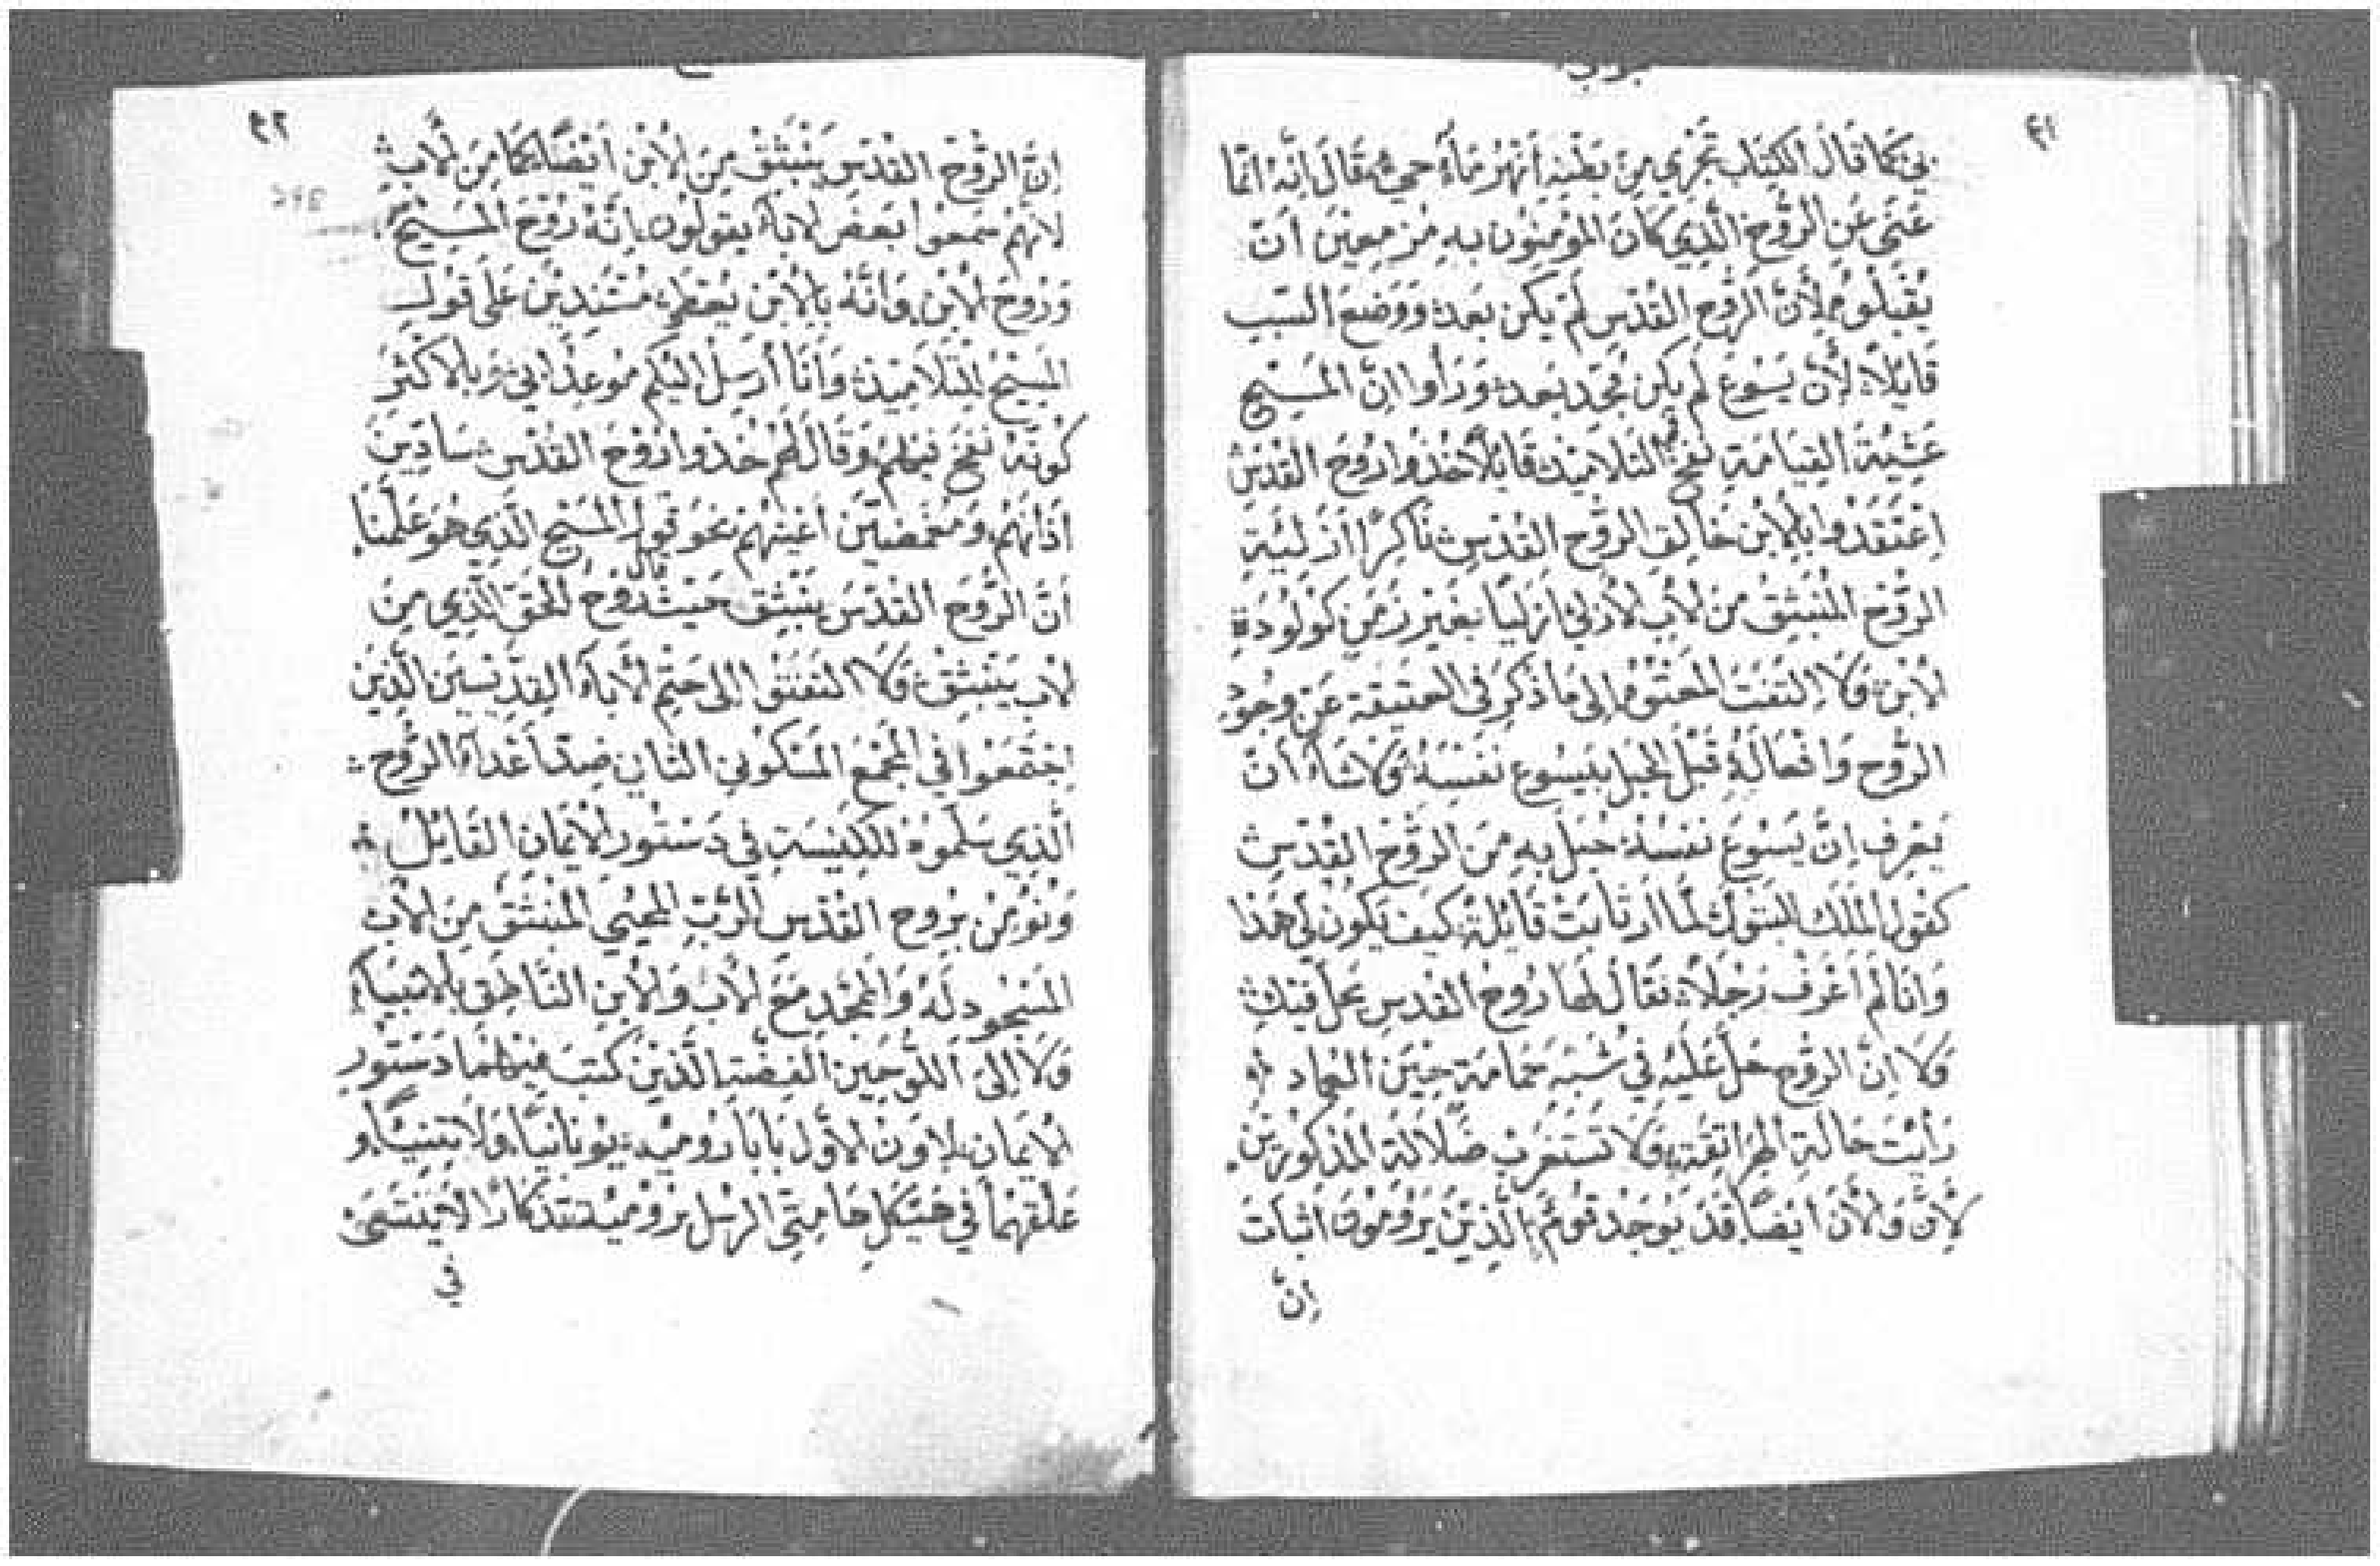 ٤١
بي كما قال الكتاب تجري من بطنه أنهر ماء حي ؞ فقال إنه انما
عني عن الروح الذي كان المؤمنون به مزمعين ان
يقبلوه لأن الروح القدس لم يكن بعد ؞ ووضع السبب
قايلاً ؞ لأن يسوع لم يكن مجد بعد ؞ وراوا ان المسيح
عشية القيامة نفخ التلاميذ قايلاً خذوا روح القدس
اعتقدوا بالابن خالق الروح القدس ؞ ناكراً ازلية
الروح المنبثق من الاب الازلي ازلياً بغير زمن كولودة
الابن ؞ ولا التفت إلى ما ذكر في الحقيقة عن وجود
الروح وافعاله قبل الحبل بيسوع نفسه ؞ ولا شاء أن
يعرف إن يسوع نفسه حبل به من الروح القدس
كقول الملك للبتول لما ارتابت قائلة كيف يكون لي هذا
وانا لم اعرف رجلاً ؞ فقال لها روح القدس يحل فيك ؞
ولا ان الروح حل عليه في شبه حمامة حين العماد ؞
رأيت حالة الهراتقة ؞ ولا تستغرب ضلالة المذكورين
لأن ولأن ايضاً قد يوجد قوم الذين يرومون اثبات
إن
٤٢
إن الروح القدس ينبثق من الابن ايضاً كما من الاب ؞
لانهم سمعوا بعض الاباء يقولون إنه روح المسيح
وروح الابن وانه بالابن يعطى ؞ مستندين على قول
المسيح للتلاميذ ؞ وانا أرسل اليكم موعد ابي ؞ وبالاكثر
كونه نفخ فيهم وقال لهم خذوا روح القدس ؞ سادين
اذانهم ومغمضين اعينهم نحو قول المسيح الذي هو علمنا
أن الروح القدس ينبثق حيث قال روح الحق الذي من
الاب ينبثق ؞ ولا التفتوا إلى حتم الأباء القديسين الذين
اجتمعوا في المجمع المسكوني الثاني ضد اعداء الروح ؞
الذي سلموه للكنيسة في دستور الأيمان القايل ؞
ونؤمن بروح القدس الرب المحيي المنبثق من الأب
المسجود له والممجد مع الأب والأبن الناطق بالانبياء
ولا إلى اللوحين الفضة الذين كتب فيهما دستور
الايمان لاون الأول بابا رومية ؞ يونانيا ولاتينياً و
علقهما في هيكل هامتي الرسل برومية تذكاراً لا ينتسى
في